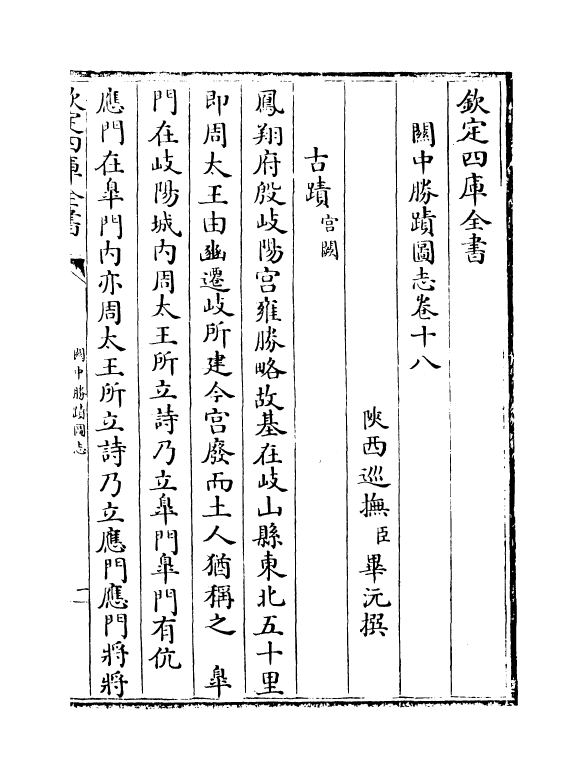 欽定四庫全書
關中勝蹟圖志卷十八
陝西巡撫臣畢沅撰
古蹟宫闕
鳳翔府殷岐陽宫雍勝略故基在岐山縣東北五十里
即周太王由豳遷岐所建今宫廢而土人猶稱之　臯
門在岐陽城内周太王所立詩乃立臯門臯門有伉
應門在臯門内亦周太王所立詩乃立應門應門將將
欽定四庫全書
關中勝蹟圖志